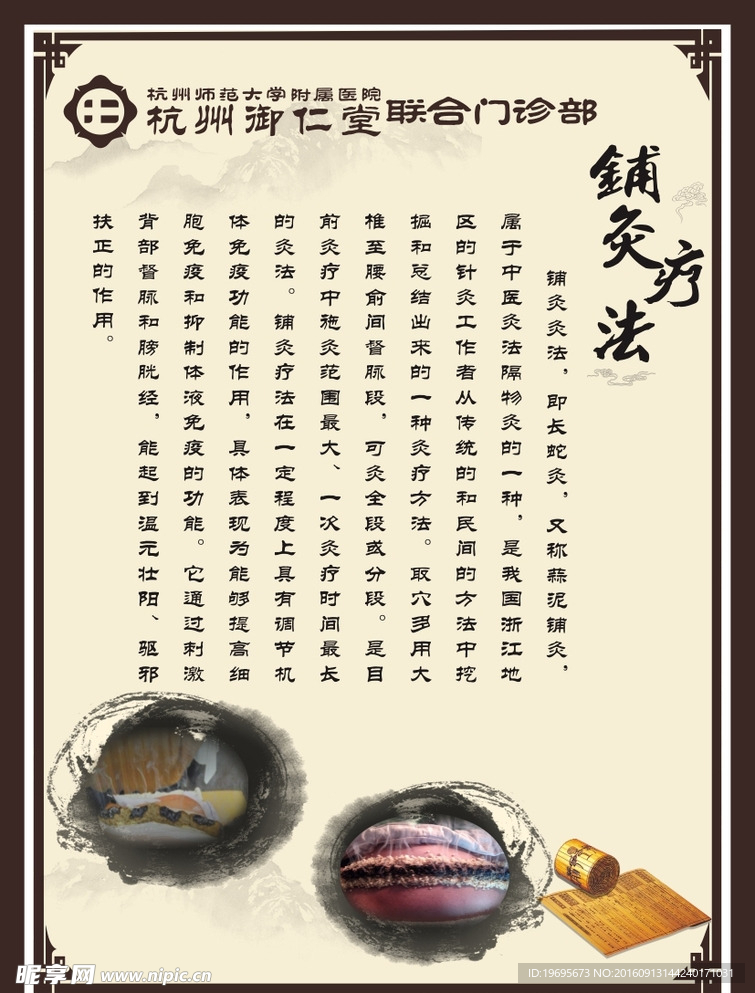 杭州师范大学附属医院
杭州御仁堂联合门诊部
鋪灸疗法
铺灸灸法，即长蛇灸，又称蒜泥铺灸，
属于中医灸法隔物灸的一种，是我国浙江地
区的针灸工作者从传统的和民间的方法中挖
掘和总结出来的一种灸疗方法。取穴多用大
椎至腰俞间督脉段，可灸全段或分段。是目
前灸疗中施灸范围最大、一次灸疗时间最长
的灸法。铺灸疗法在一定程度上具有调节机
体免疫功能的作用，具体表现为能够提高细
胞免疫和抑制体液免疫的功能。它通过刺激
背部督脉和膀胱经，能起到温元壮阳、驱邪
扶正的作用。
昵享网 www.nipic.cn
ID:19695673 NO:20160913144240171031